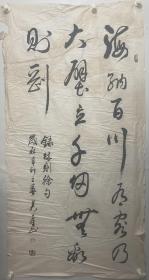 海納百川有容乃
大壁立千仞無欲
則剛
錄林則徐句